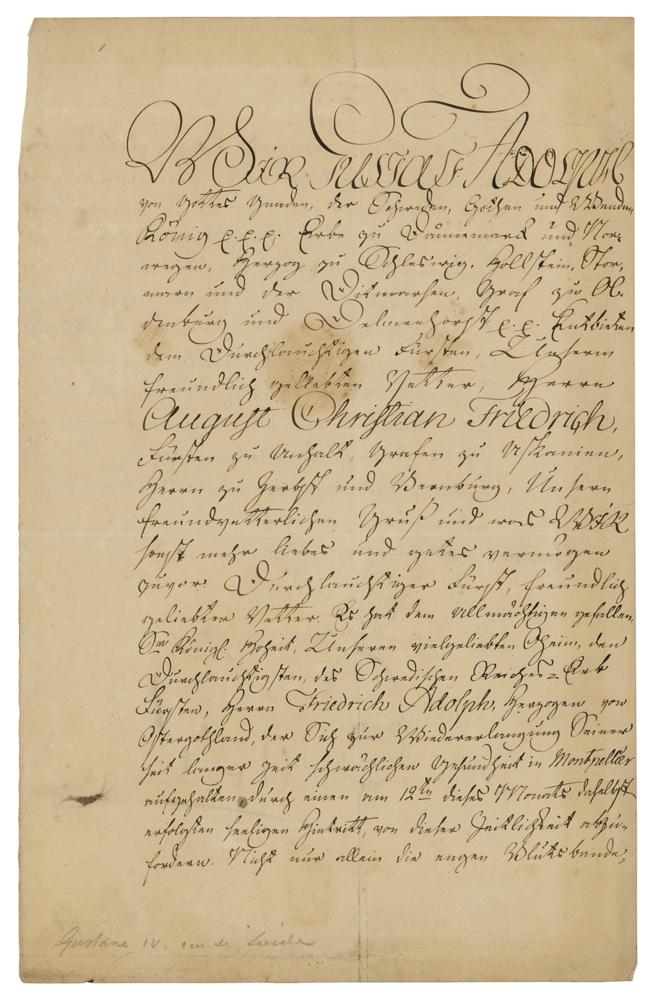 Wir Gustaf Adolph
von Gottes Gnaden, der Schweden, Gothen und Wenden
König p. p. p. Erbe zu Dännemarck und Nor-
wegen, Herzog zu Schleswig, Hollstein, Stor,
marn und der Ditmarsen, Graf zu Ol-
denburg und Delmenhorst p. p. Entbieten
dem Durchlauchtigen Fürsten, Unserm
freundlich geliebten Vetter, Herrn
August Christian Friedrich,
Fürsten zu Anhalt, Grafen zu Askanien,
Herrn zu Zerbst und Bernburg, Unsern
freundvetterlichen Gruß und was WIR
sonst mehr liebes und gutes vermögen
zuvor. Durchlauchtiger Fürst, freundlich
geliebter Vetter. Es hat dem Allmächtigen gefallen,
Sr Königl. Hoheit, Unseren vielgeliebten Oheim, den
Durchlauchtigsten, des Schwedischen Reiches-Erb
Fürsten, Herrn Friedrich Adolph, Herzogen von
Ostergothland, der Sich zur Wiedererlangung Seiner
seit langer Zeit schwächlichen Gesundheit in Montpellier
aufgehalten, durch einen am 12ten dieses Monats daselbst
erfolgten seeligen Hintritt, von dieser Zeitlichkeit abzu-
fordern. Nicht nur allein die engen Blutsbande,
Gustave IV. roi de Suède